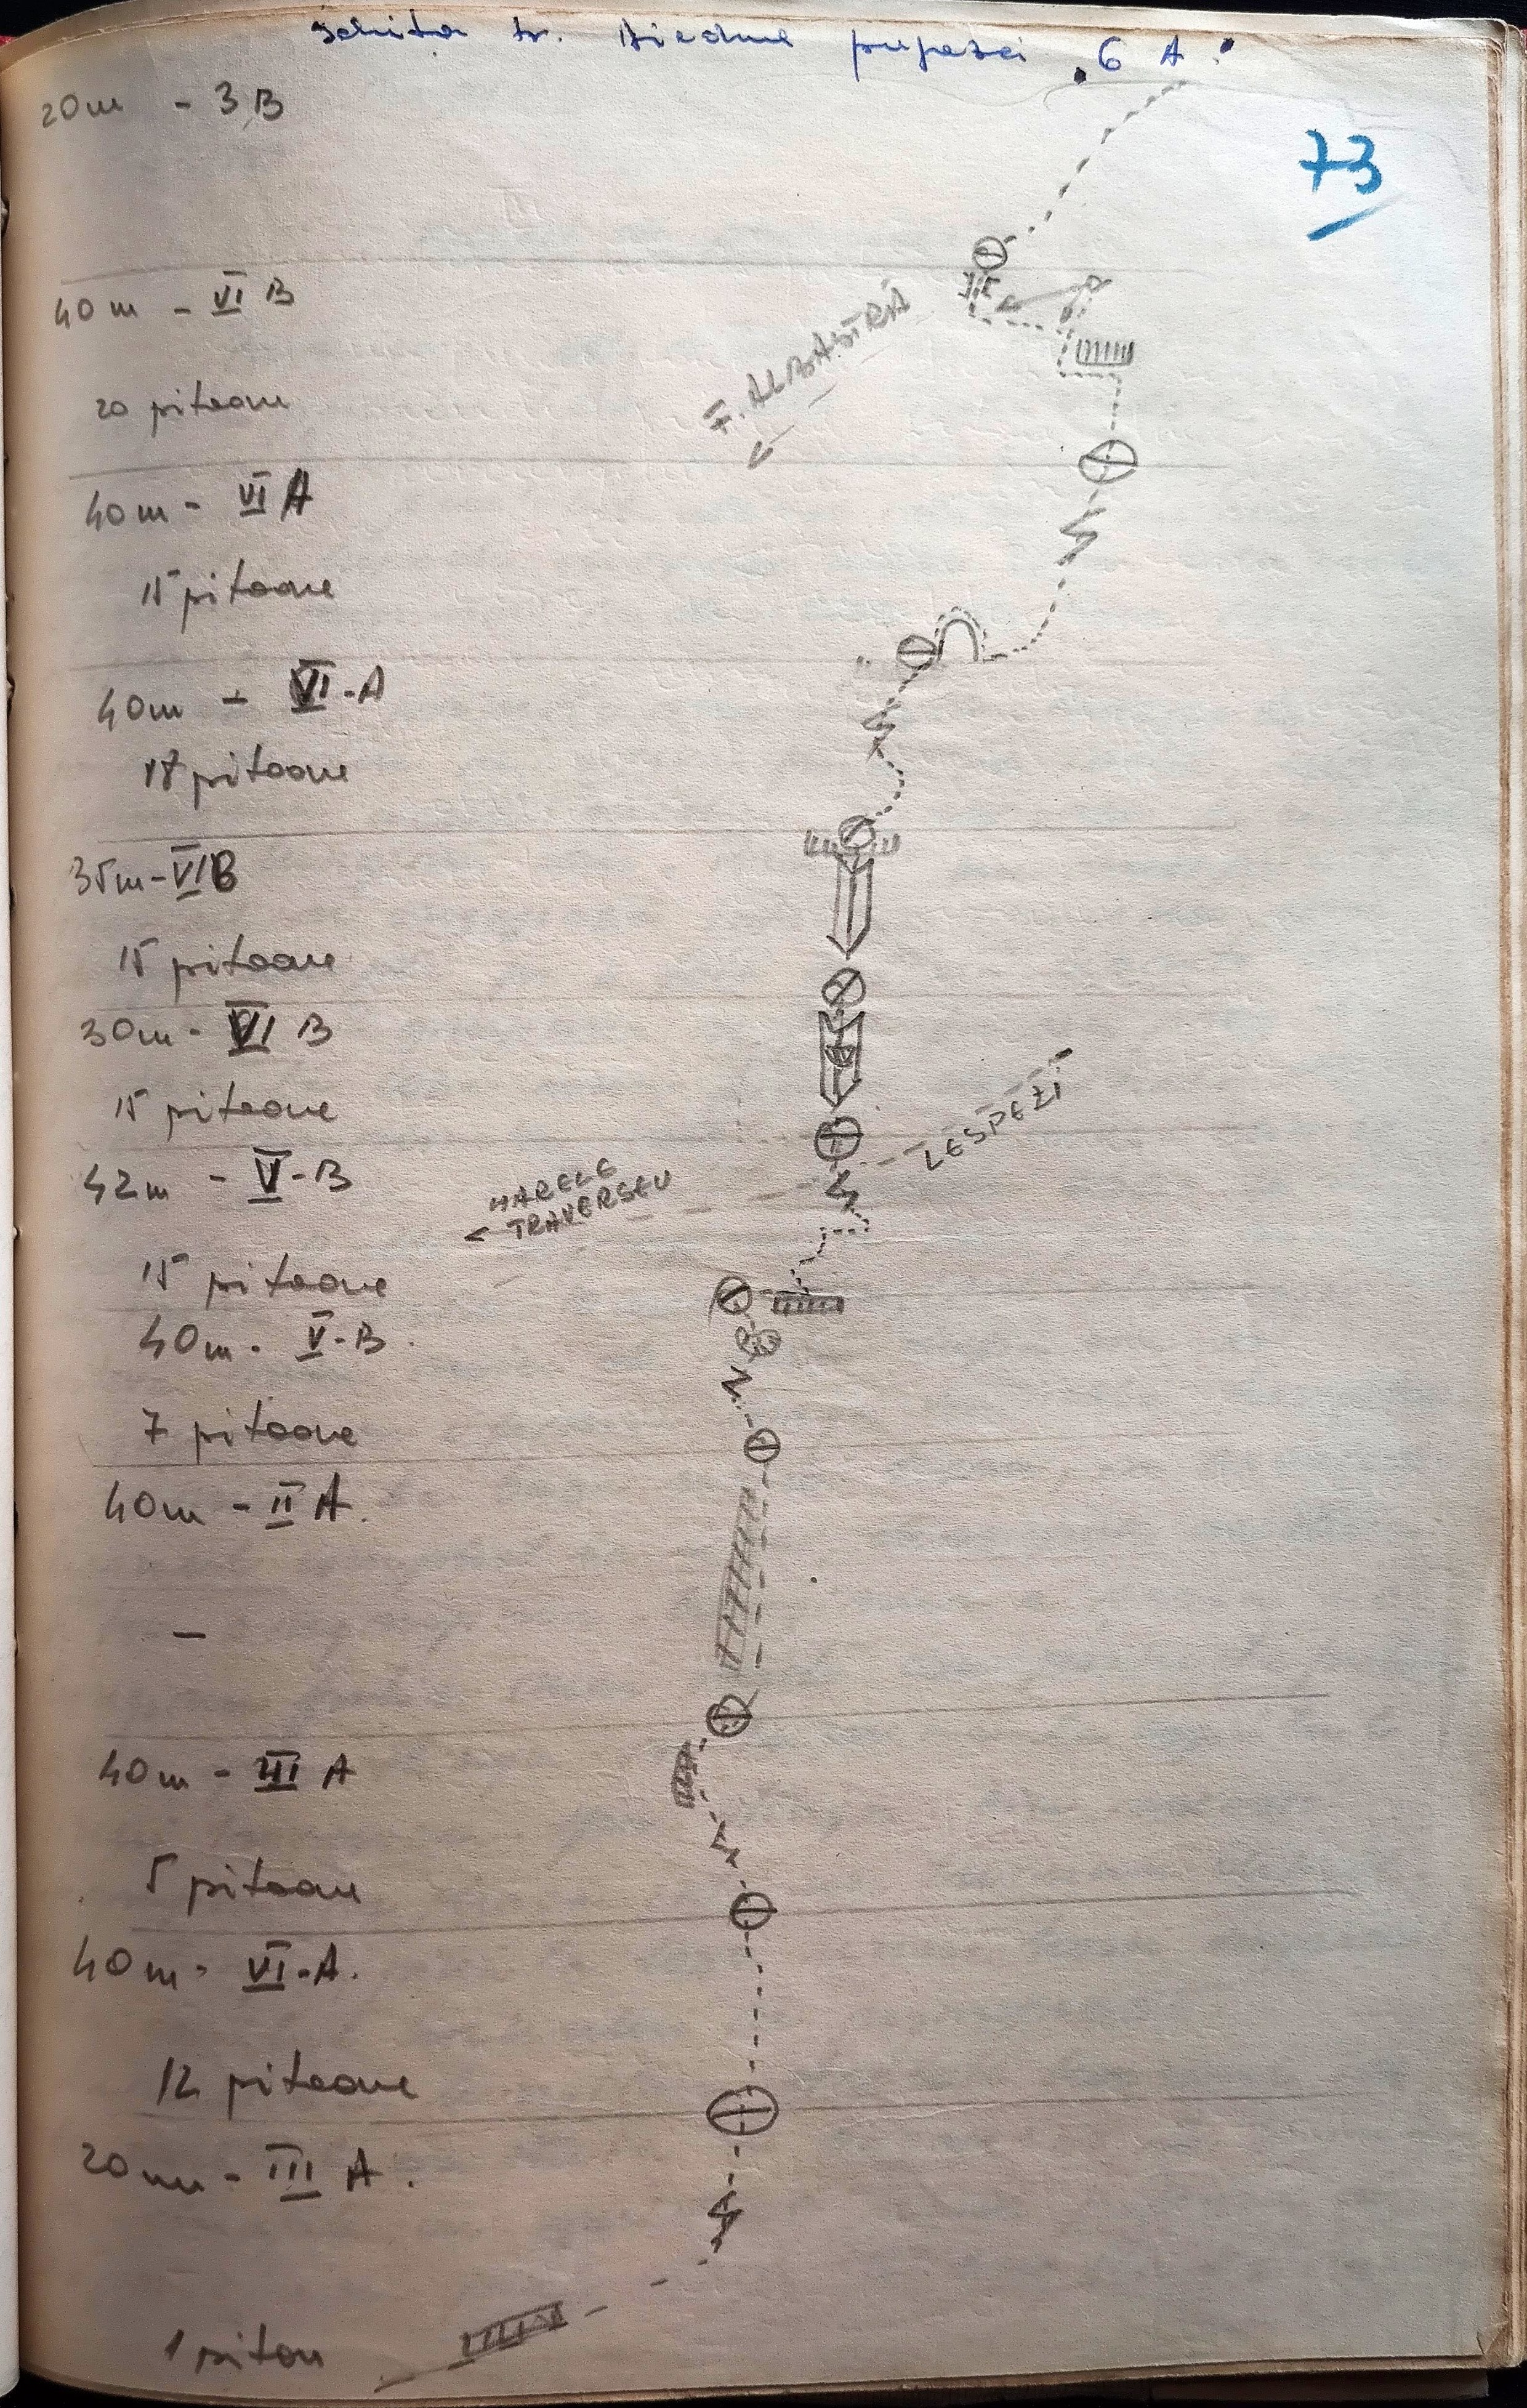 Schița tr. Diedrul pupezei "6 A"
73
20m - 3B
40m - VI B
F. ALBASTRĂ
20 pitoane
40m - VI A
15 pitoane
40m - VI-A
18 pitoane
35m - VI B
15 pitoane
30m - VI B
15 pitoane
LESPEZI
42m - V-B
MARELE
TRAVERSEU
15 pitoane
40m - V-B.
7 pitoane
40m - II A.
-
40m - III A
5 pitoane
40m - VI-A.
12 pitoane
20m - III A.
1 piton